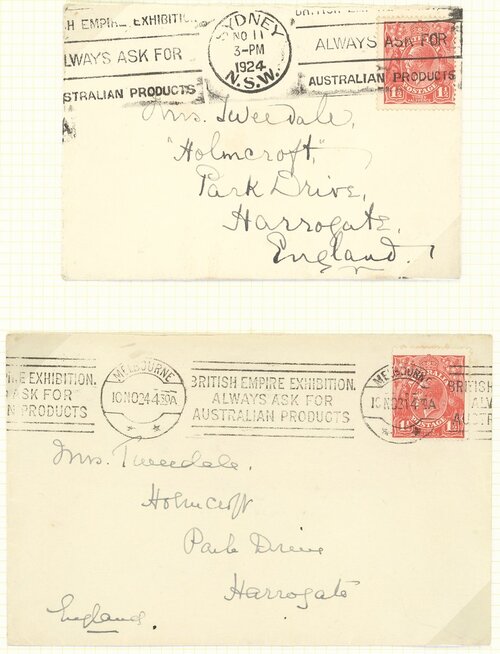 SH EMPIRE EXHIBITION.
ALWAYS ASK FOR
STRALIAN PRODUCTS
SYDNEY
NO 11
3-PM
1924
N.S.W.
BRITISH EMPIRE EXHIBITION
ALWAYS ASK FOR
AUSTRALIAN PRODUCTS
1½ POSTAGE 1½
Mrs. Tweedale,
"Holmcroft,"
Park Drive,
Harrogate,
England.
EXHIBITION.
ASK FOR
PRODUCTS
MELBOURNE
10NO24 430A
BRITISH EMPIRE EXHIBITION.
ALWAYS ASK FOR
AUSTRALIAN PRODUCTS
MELBOURNE
BRITISH
AL
AUST
Mrs. Tweedale.
Holmcroft
Park Drive
Harrogate
England.